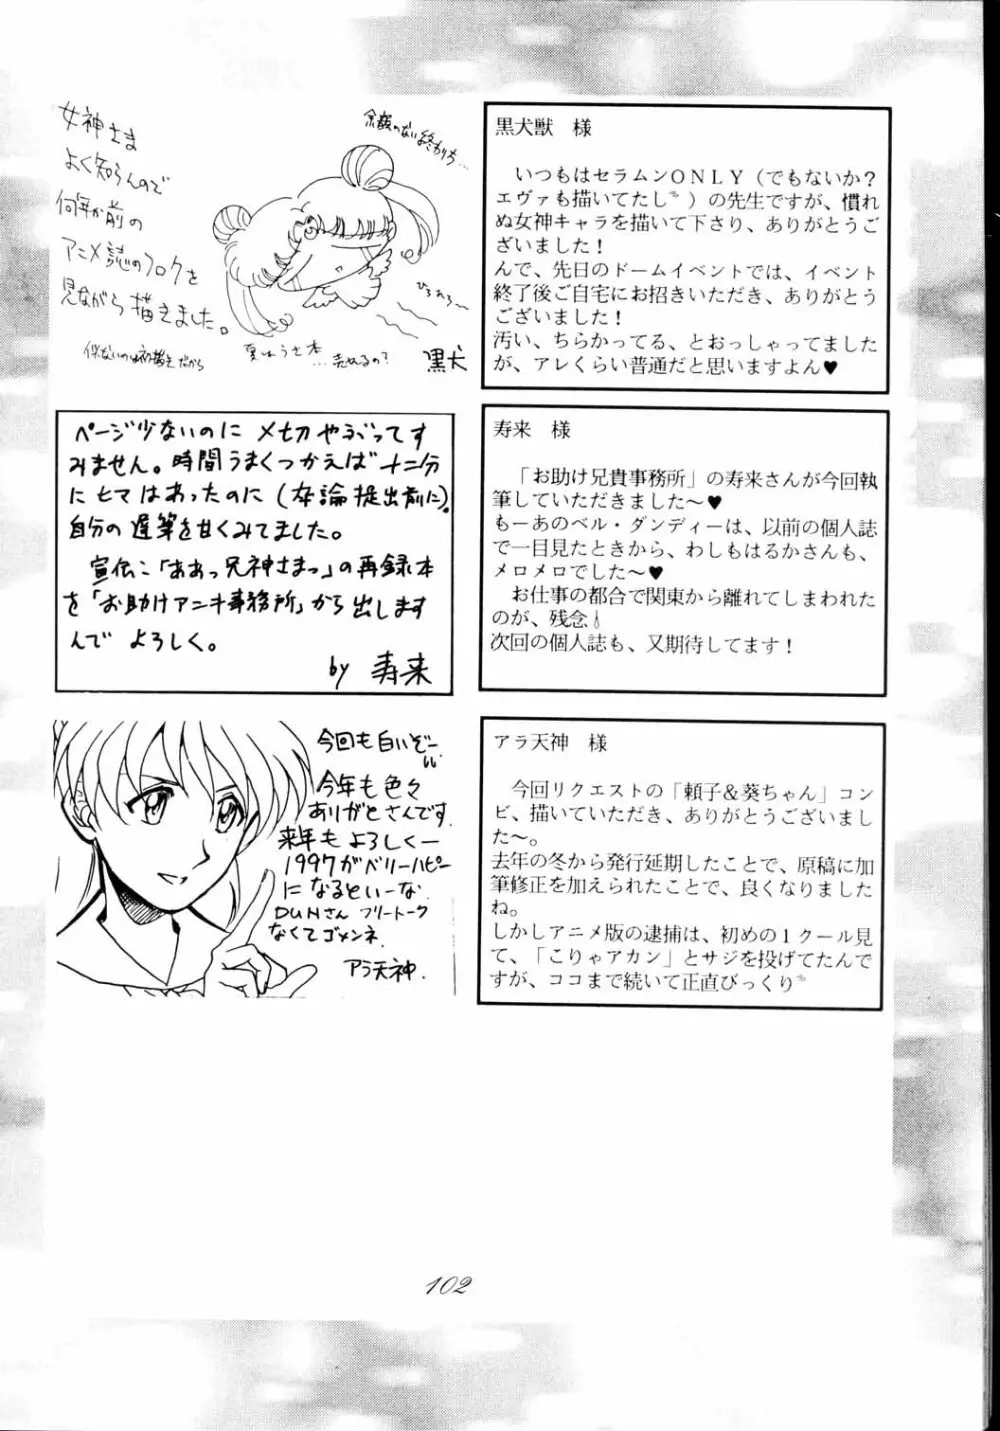 女神さま
よく知らんので
何年か前の
アニメ誌のフロクを
見ながら描きました。
似ないのは初描きだから
余裕のない終わり方…
ひろひろ〜
…売れるの?
黒犬
黒犬獣　様
いつもはセラムンONLY(でもないか?
エヴァも描いてたし)の先生ですが、慣れ
ぬ女神キャラを描いて下さり、ありがとうご
ざいました!
んで、先日のドームイベントでは、イベント
終了後ご自宅にお招きいただき、ありがとう
ございました!
汚い、ちらかってる、とおっしゃってました
が、アレくらい普通だと思いますよん♥
ページ少ないのに〆切やぶってす
みません。時間うまくつかえば十二分
にヒマはあったのに(卒論提出前に)。
自分の遅筆を甘くみてました。
宣伝:「ああっ兄神さまっ」の再録本
を「お助けアニキ事務所」から出します
んで よろしく。
by 寿来
寿来　様
「お助け兄貴事務所」の寿来さんが今回執
筆していただきました〜♥
もーあのベル・ダンディーは、以前の個人誌
で一目見たときから、わしもはるかさんも、
メロメロでした〜♥
お仕事の都合で関東から離れてしまわれた
のが、残念
次回の個人誌も、又期待してます!
今回も白いぞー
今年も色々
ありがとさんです
来年もよろしくー
1997がベリーハピー
になるといーな
DUNさん フリートーク
なくてゴメンネ
アラ天神.
アラ天神　様
今回リクエストの「頼子&葵ちゃん」コン
ビ、描いていただき、ありがとうございまし
た〜。
去年の冬から発行延期したことで、原稿に加
筆修正を加えられたことで、良くなりました
ね。
しかしアニメ版の逮捕は、初めの1クール見
て、「こりゃアカン」とサジを投げてたんで
すが、ココまで続いて正直びっくり
102